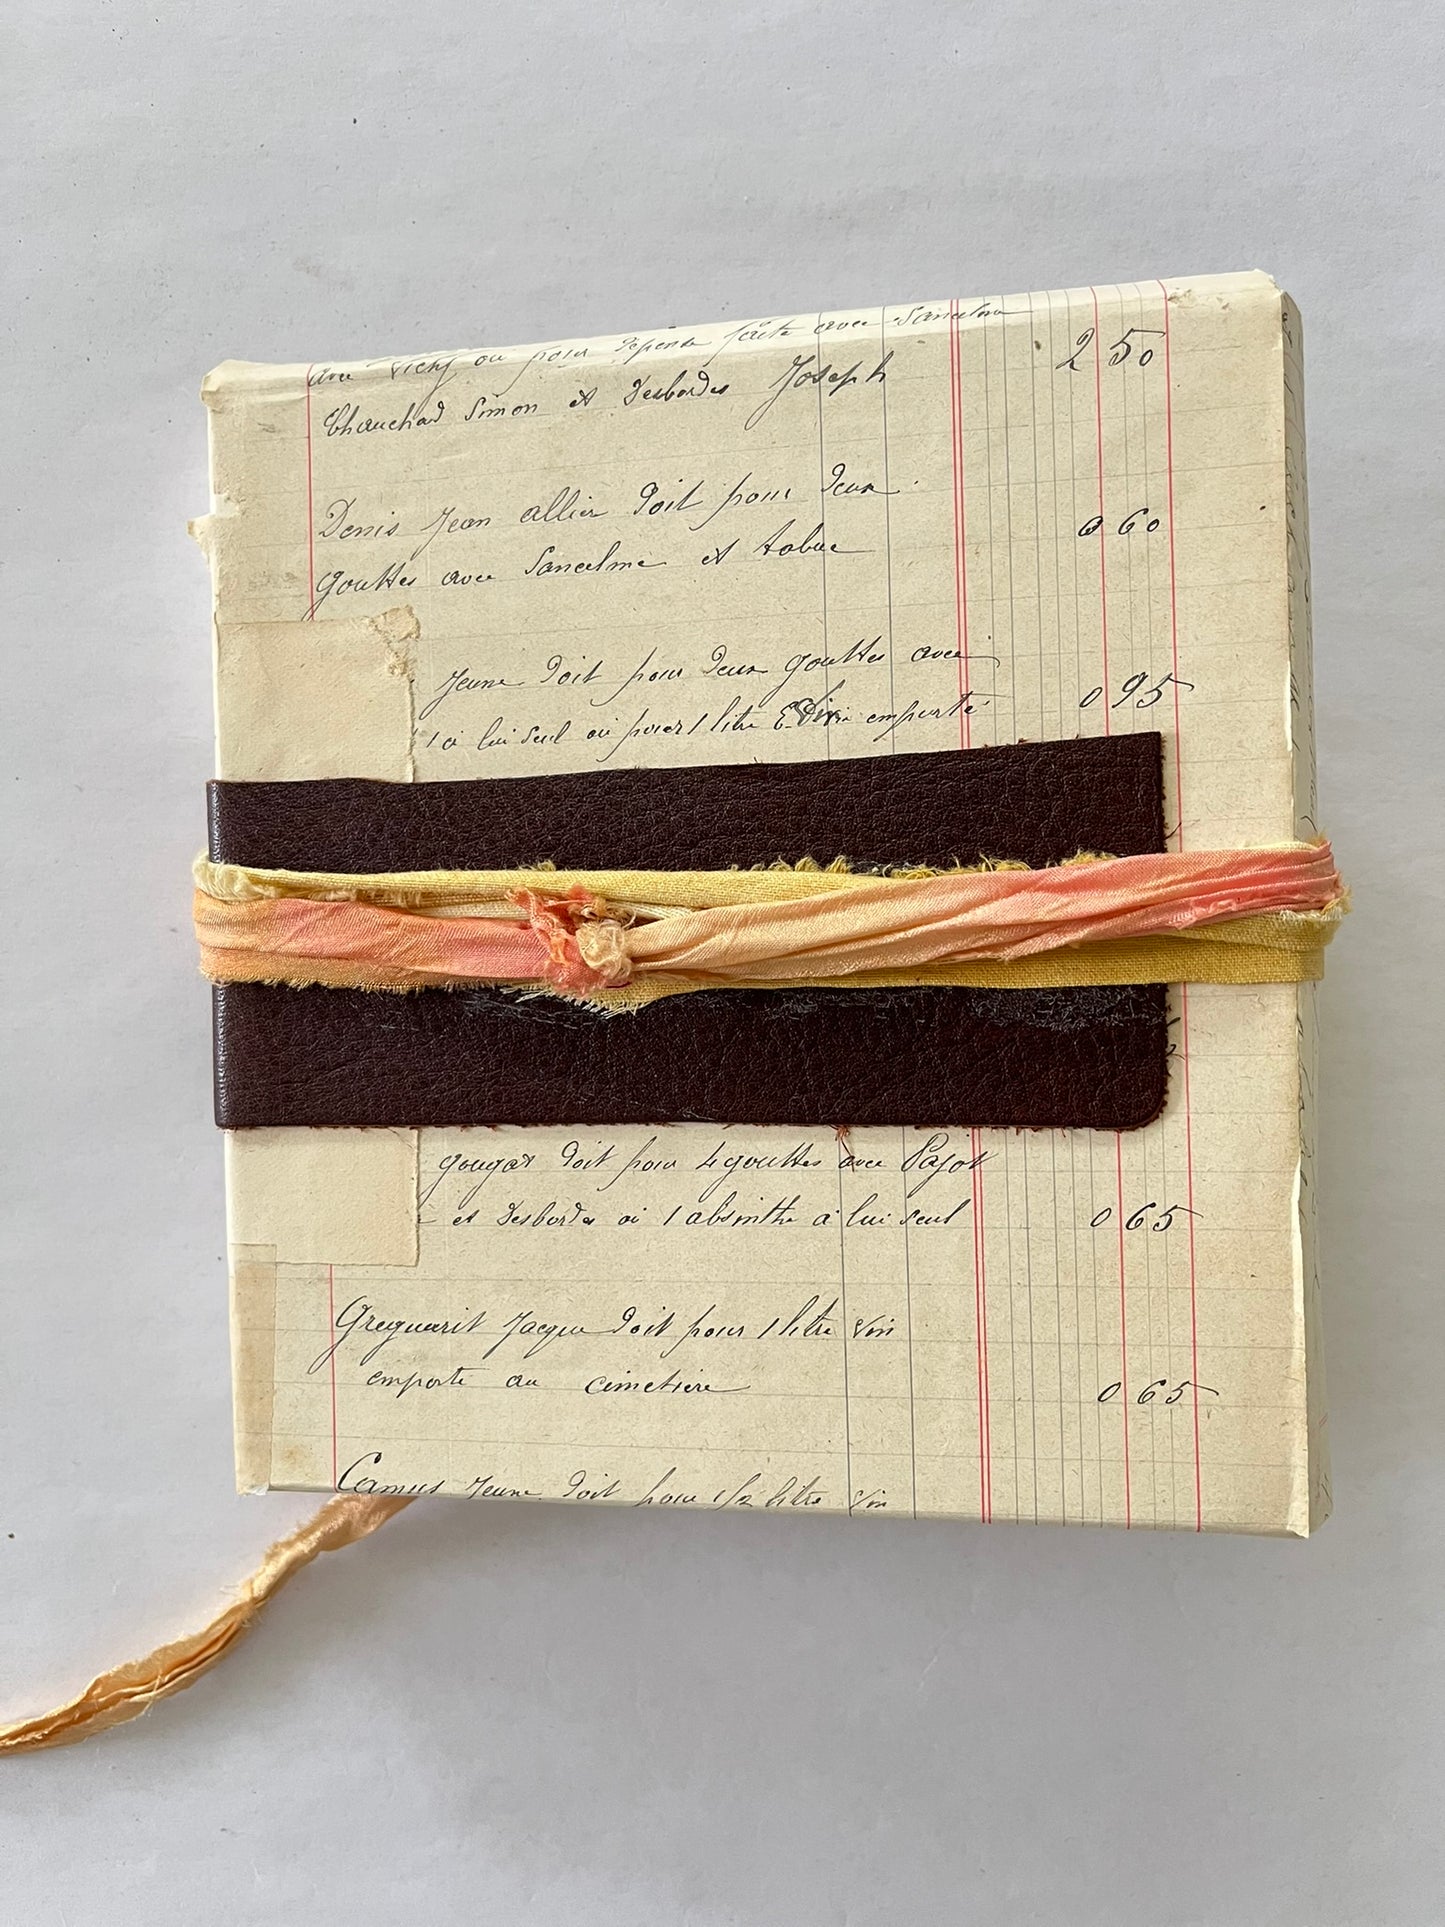 avec Vichy ou pour dépense faite avec Sancelme
Chauchard Simon et Desbordes Joseph 2 50
Denis Jean allier Doit pour deux
gouttes avec Sancelme et tabac 0 60
Jeune Doit pour deux gouttes avec
1 à lui seul ou pour 1 litre vin emporté 0 95
Doit pour 4 gouttes avec Pajot
et Desbordes ou 1 absinthe à lui seul 0 65
Greguerit Jacque Doit pour 1 litre vin
emporté au cimetière 0 65
Camus Jeune Doit pour 1/2 litre vin